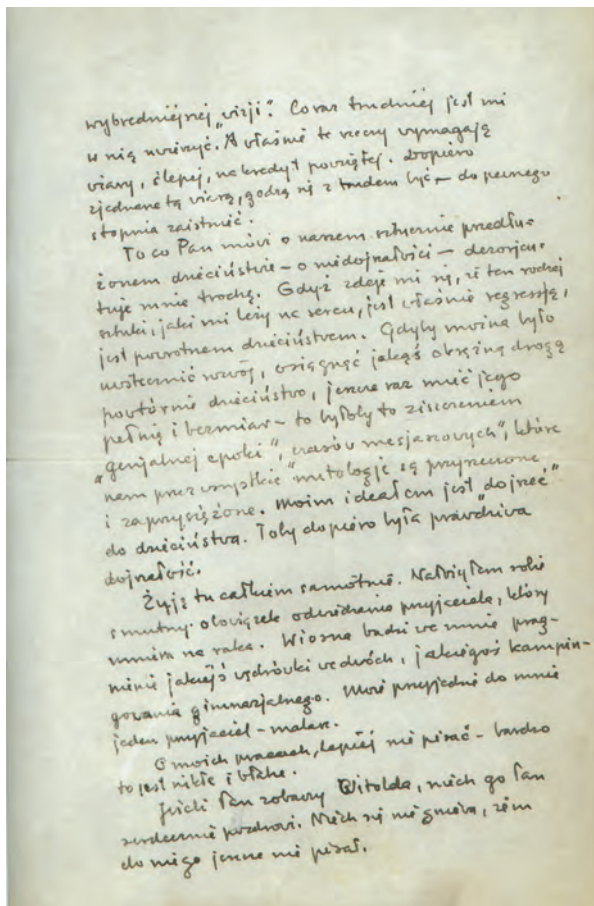 wybredniejszej „wizji”. Coraz trudniej jest mi
w nią uwierzyć. A właśnie te rzeczy wymagają
wiary, ślepej, na kredyt powziętej. Dopiero
zjednane tą wiarą, godzą się z trudem być – do pewnego
stopnia zaistnieć.
To co Pan mówi o naszem sztucznie przedłu-
żonem dzieciństwie – o niedojrzałości – dezorjen-
tuje mnie trochę. Gdyż zdaje mi się, że ten rodzaj
sztuki, jaki mi leży na sercu, jest właśnie regresją,
jest powrotnem dzieciństwem. Gdyby można było
uwstecznić rozwój, osiągnąć jakąś okrężną drogą
powtórnie dzieciństwo, jeszcze raz mieć jego
pełnię i bezmiar – to byłoby to ziszczeniem
„genjalnej epoki”, „czasów mesjaszowych”, które
nam przez wszystkie mitologje są przyrzeczone
i zaprzysiężone. Moim ideałem jest „dojrzeć”
do dzieciństwa. Toby dopiero była prawdziwa
dojrzałość.
Żyję tu całkiem samotnie. Nałożyłem sobie
smutny obowiązek odwiedzania przyjaciela, który
umiera na raka. Wiosna budzi we mnie prag-
nienie jakiejś wędrówki we dwóch, jakiegoś kampin-
gowania gimnazjalnego. Może przyjedzie do mnie
jeden przyjaciel – malarz.
O moich pracach, lepiej nie pisać – bardzo
to jest nikłe i błahe.
Jeżeli Pan zobaczy Witolda, niech go Pan
serdecznie pozdrowi. Niech się nie gniewa, żem
do niego jeszcze nie pisał.